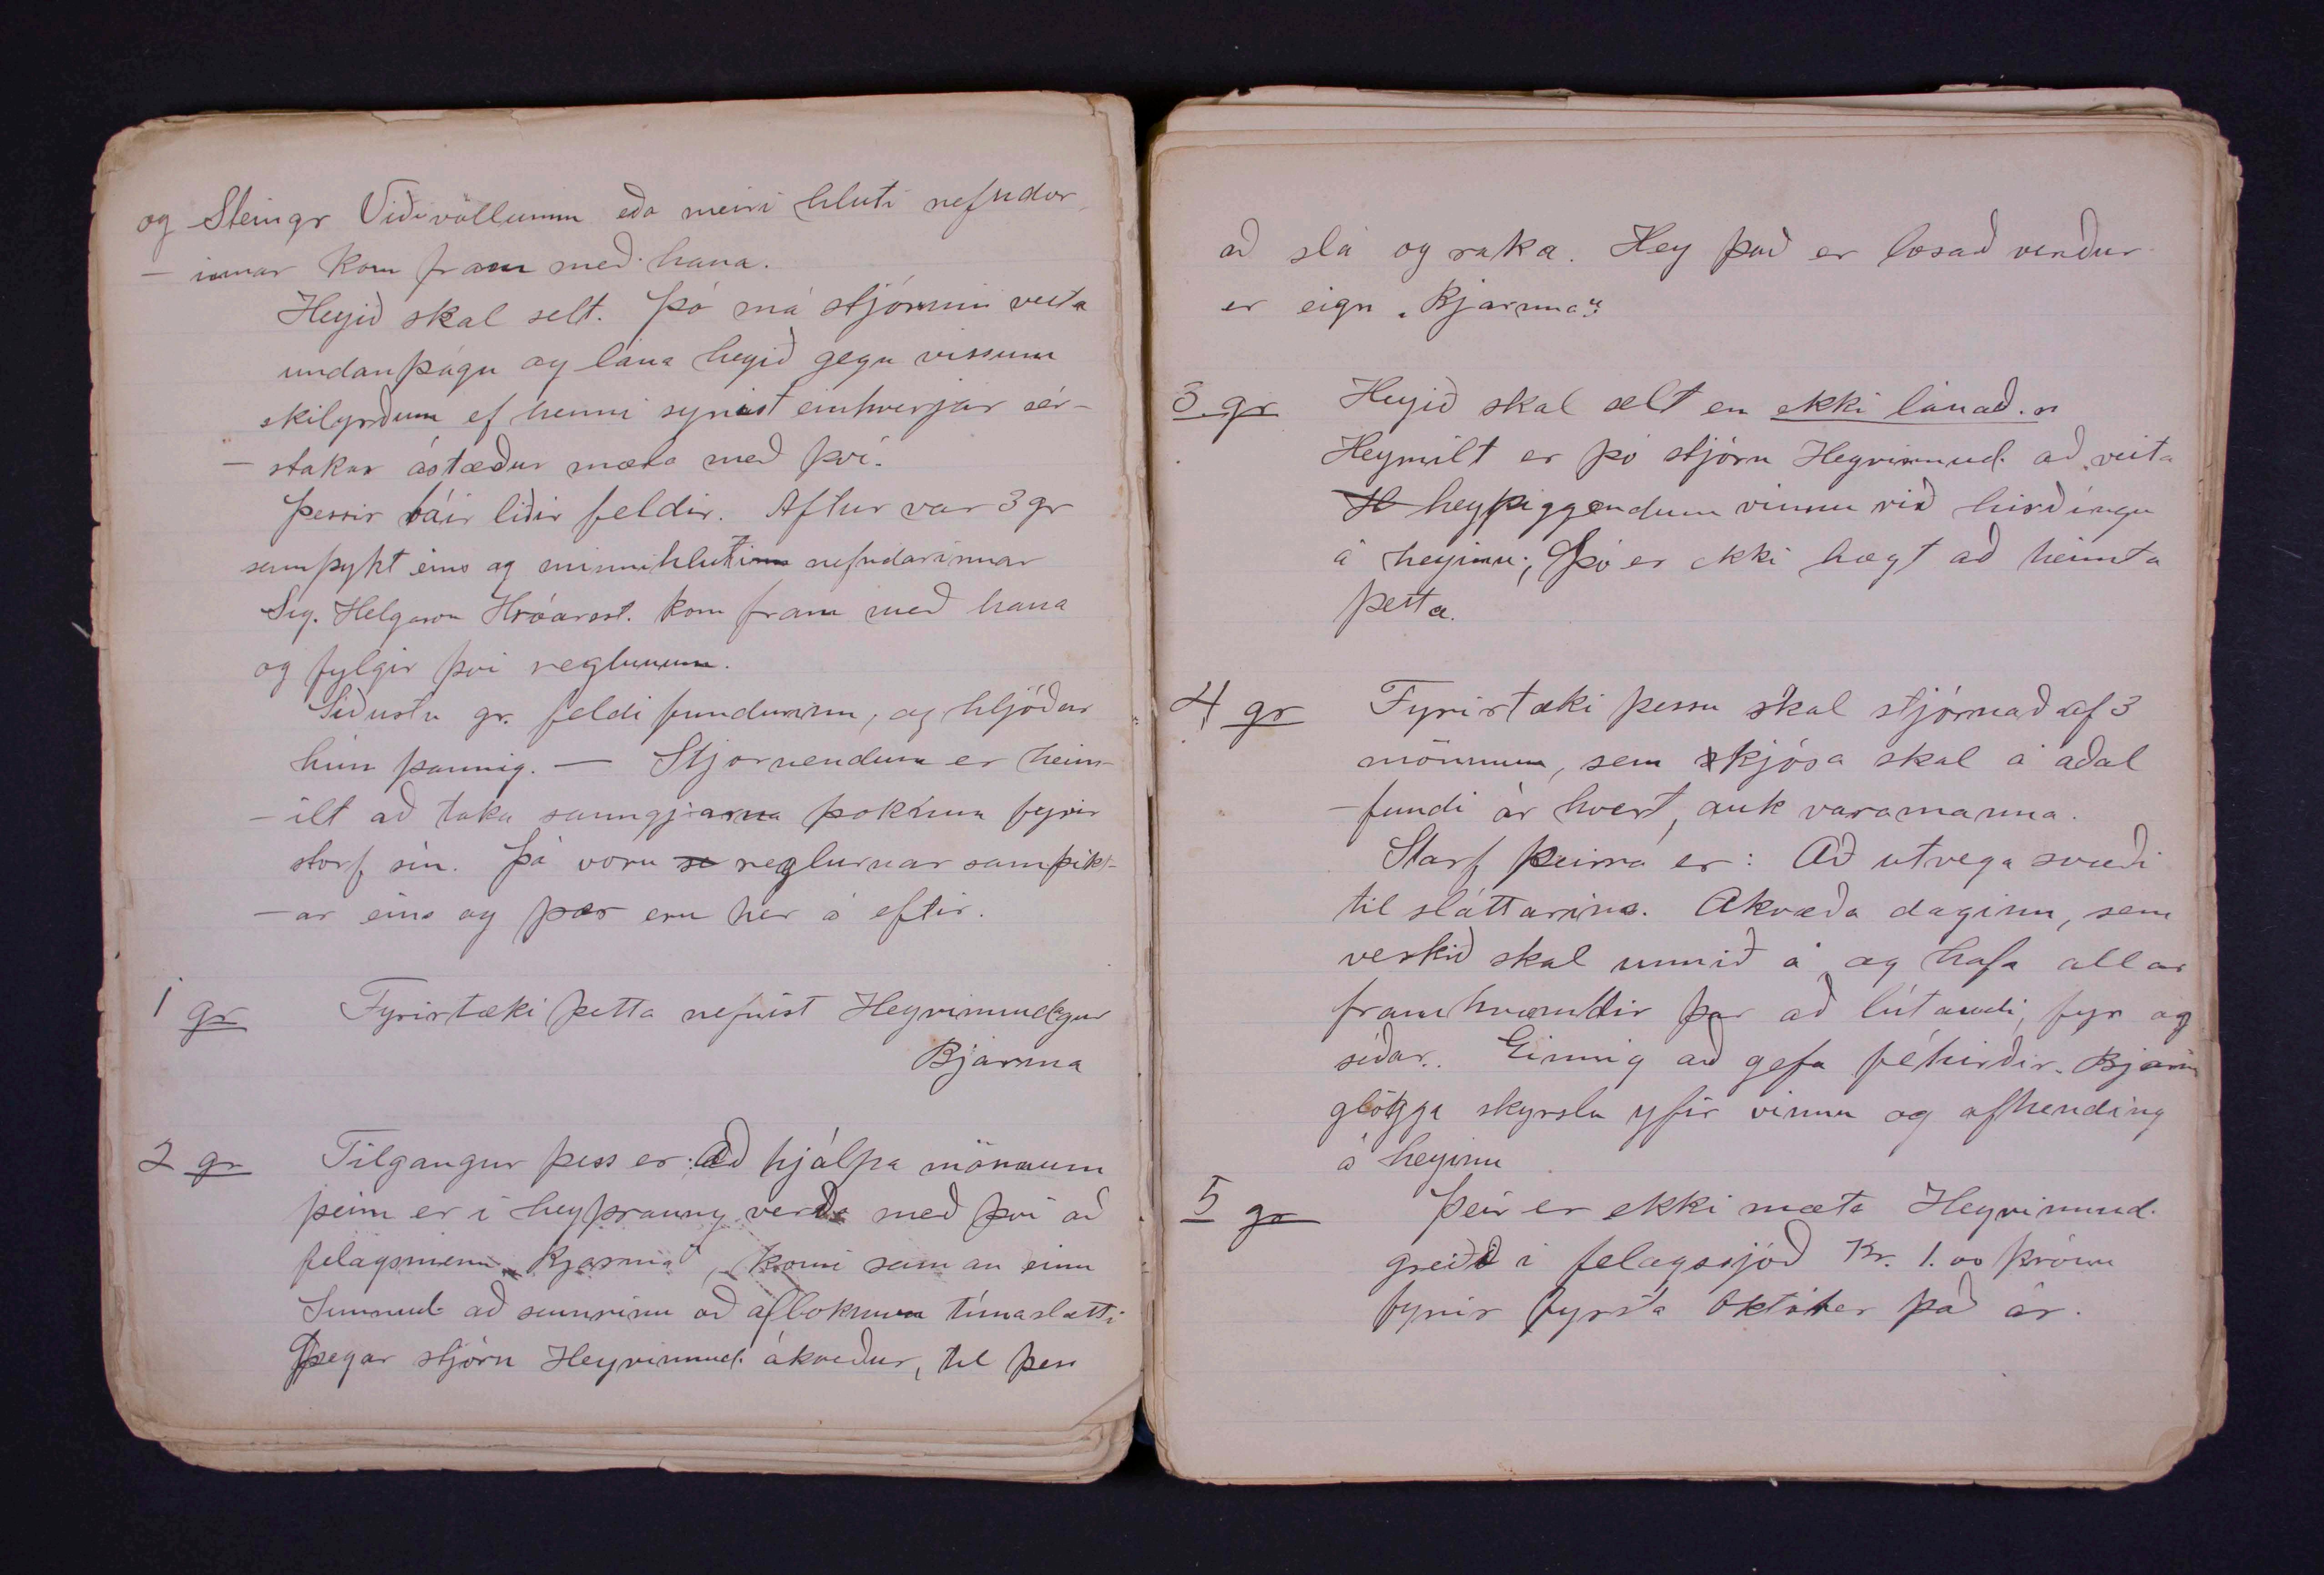 og Steingr Viðivöllumm eða meiri hluti nefndar
- innar kom fram með hana.
Heyið skal selt. Þó má stjórnin veita
undanþágu og lána heyið gegn vissum
skilyrðum ef henni synist einhverjar sér-
- stakar ástæður mæla með því.
Þessir báir liðir feldir. Aftur var 3 gr
samþykt eins og minnihlutinn nefndarinnar
Sig. Helgason Hróarsst. kom fram með hana
og fylgir þvi reglunum.
Siðustu gr. feldi fundurinn, og hljóðar
hún þannig. — Stjornendum er heim-
- ilt að taka sanngjarna þoknun fyrir
storf sin. Þá voru reglurnar samþikt-
- ar eins og þær eru hér á eftir.
1 gr Fyrirtæki þetta nefnist Heyvinnudagur
Bjarma
2 gr Tilgangur þess er: Að hjálpa mönnum
þeim er i heyþraung verða með þvi að
felagsmenn „Bjarma", komi saman einn
Sunnud. að sumrinu að afloknum túnaslætti
þegar stjórn Heyvinnud. ákveður, til þess
að slá og raka. Hey það er losað verður
er eign „Bjarma".
3. gr Heyið skal selt en ekki lánað.
Heymilt er þó stjórn Heyvinnud. að veita
heyþiggendum vinnu við hirðingu
á heyinu; Þó er ekki hægt að heimta
þetta.
4 gr Fyrirtæki þessu skal stjórnað af 3
mönnum, sem kjósa skal á aðal
- fundi ár hvert, auk varamanna.
Starf þeirra er: Að utvega svæði
til sláttarins. Akvæða daginn, sem
verkið skal unnið á og hafa allar
framkvæmdir þar að lútandi, fyr og
síðar. Einnig að gefa féhirðir. Bjarma
glögga skyrslu yfir vinnu og afhending
á heyinu
5 gr Þeir er ekki mæta Heyvinnud.
greiði i felagssjóð Kr. 1.00 krónu
fyrir fyrsta Október það ár.